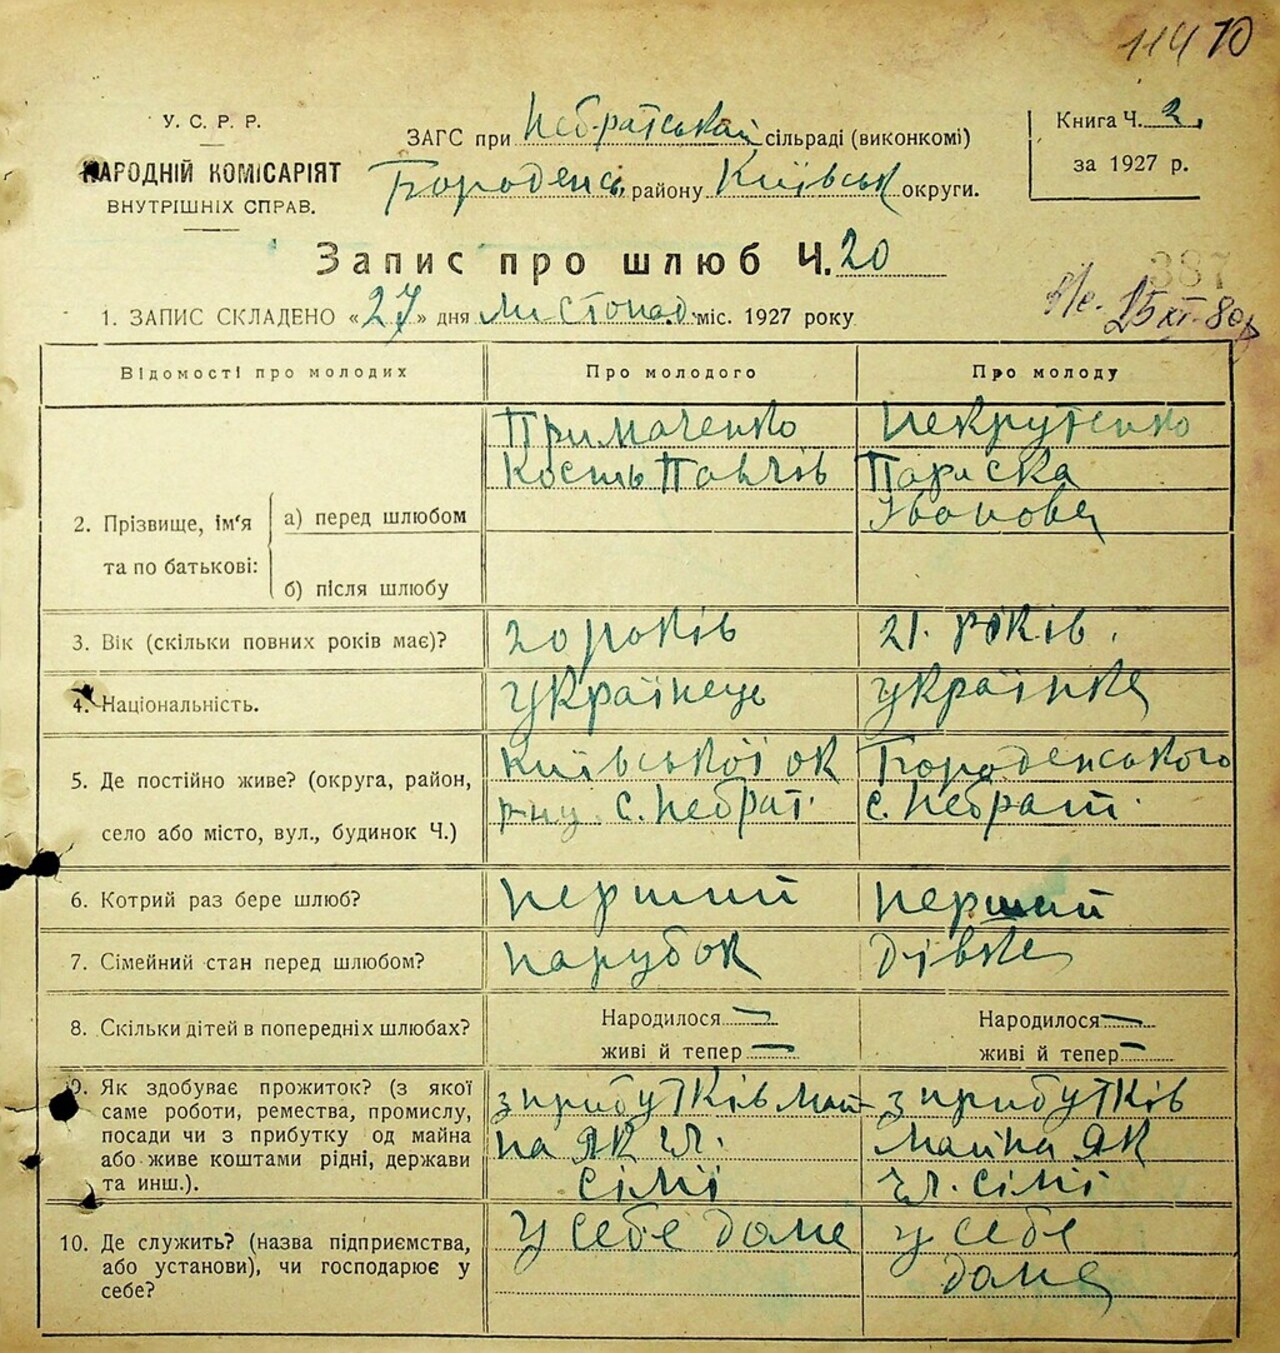 114 70
У. С. Р. Р.
НАРОДНІЙ КОМІСАРІЯТ
ВНУТРІШНІХ СПРАВ.
ЗАГС при Небратській сільраді (виконкомі)
Бороденсь. району Київськ округи.
Книга Ч. 2
за 1927 р.
Запис про шлюб Ч. 20
387
25 XI-80
1. ЗАПИС СКЛАДЕНО «27» дня листопад міс. 1927 року
Відомості про молодих Про молодого Про молоду
2. Прізвище, ім'я та по батькові:
а) перед шлюбом
б) після шлюбу
Примаченко
Кость Павлів
Некрутенко
Параска
Іванова
3. Вік (скільки повних років має)? 20 років 21. років.
4. Національність. українець українка
5. Де постійно живе? (округа, район,
село або місто, вул., будинок Ч.)
Київської ок
с. Небрат.
Бороденського
с. Небрат.
6. Котрий раз бере шлюб? перший перший
7. Сімейний стан перед шлюбом? парубок дівка
8. Скільки дітей в попередніх шлюбах?
Народилося —
живі й тепер —
Народилося —
живі й тепер —
9. Як здобуває прожиток? (з якої
саме роботи, ремества, промислу,
посади чи з прибутку од майна
або живе коштами рідні, держави
та инш.).
з прибутків май-
на як чл.
сімії
з прибутків
майна як
чл. сімії
10. Де служить? (назва підприємства,
або установи), чи господарює у
себе?
у себе дома
у себе
дома